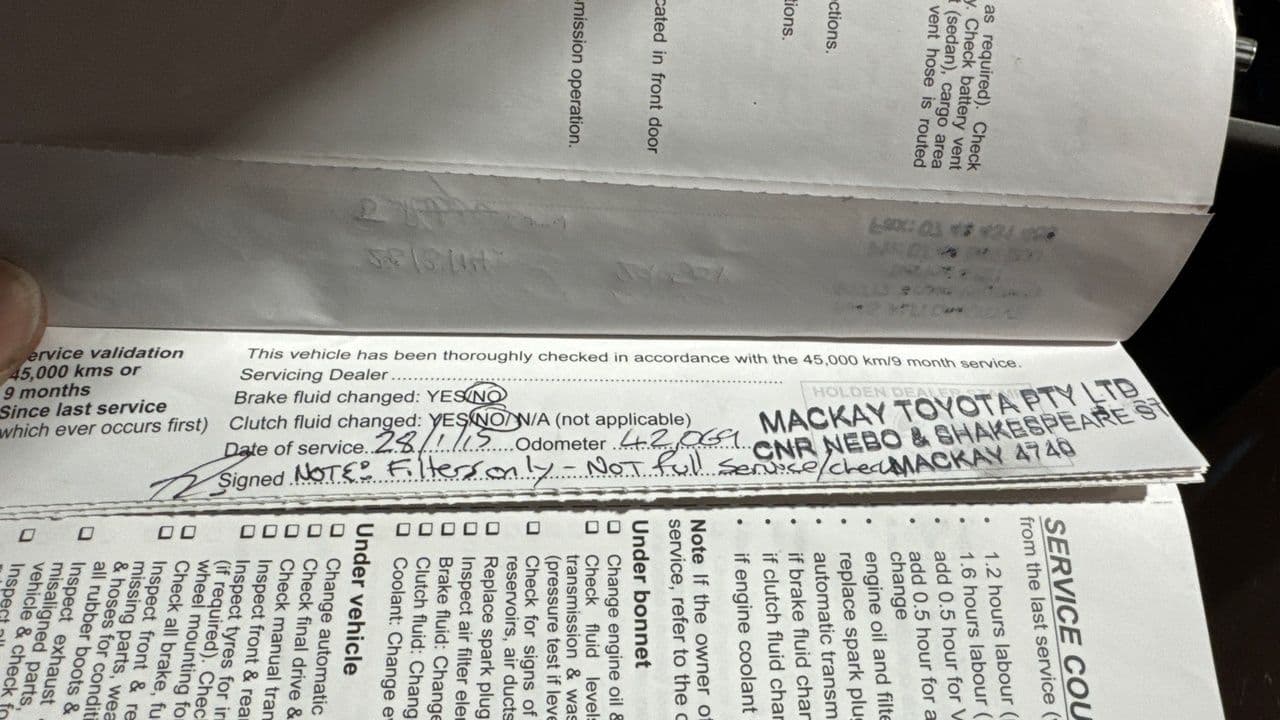 as required). Check
y. Check battery vent
t (sedan), cargo area
vent hose is routed
ctions.
tions.
cated in front door
mission operation.
28/8/14
ervice validation
45,000 kms or
9 months
Since last service
which ever occurs first)
This vehicle has been thoroughly checked in accordance with the 45,000 km/9 month service.
Servicing Dealer
Brake fluid changed: YES/NO
Clutch fluid changed: YES/NO/N/A (not applicable)
Date of service 28/1/15 Odometer 42,069
Signed NOTE: Filters only - NOT full service/check
HOLDEN DEALER
MACKAY TOYOTA PTY LTD
CNR NEBO & SHAKESPEARE ST
MACKAY 4740
SERVICE COU
from the last service (
• 1.2 hours labour (
• 1.6 hours labour (
• add 0.5 hour for V
• add 0.5 hour for a
change
• engine oil and filte
• replace spark plug
• automatic transm
• if brake fluid chan
• if clutch fluid char
• if engine coolant
Note If the owner of
service, refer to the c
Under bonnet
☐ Change engine oil &
☐ Check fluid levels
transmission & was
(pressure test if leve
☐ Check for signs of
reservoirs, air ducts
☐ Replace spark plug
☐ Inspect air filter eler
☐ Brake fluid: Change
☐ Clutch fluid: Chang
☐ Coolant: Change e
Under vehicle
☐ Change automatic
☐ Check final drive &
☐ Check manual tran
☐ Inspect front & rea
☐ Inspect tyres for in
(if required). Chec
wheel mounting fo
☐ Check all brake, fu
☐ Inspect front & re
missing parts, wea
& hoses for conditi
all rubber boots &
☐ Inspect exhaust
misaligned parts,
vehicle & check fo
☐ Inspect all